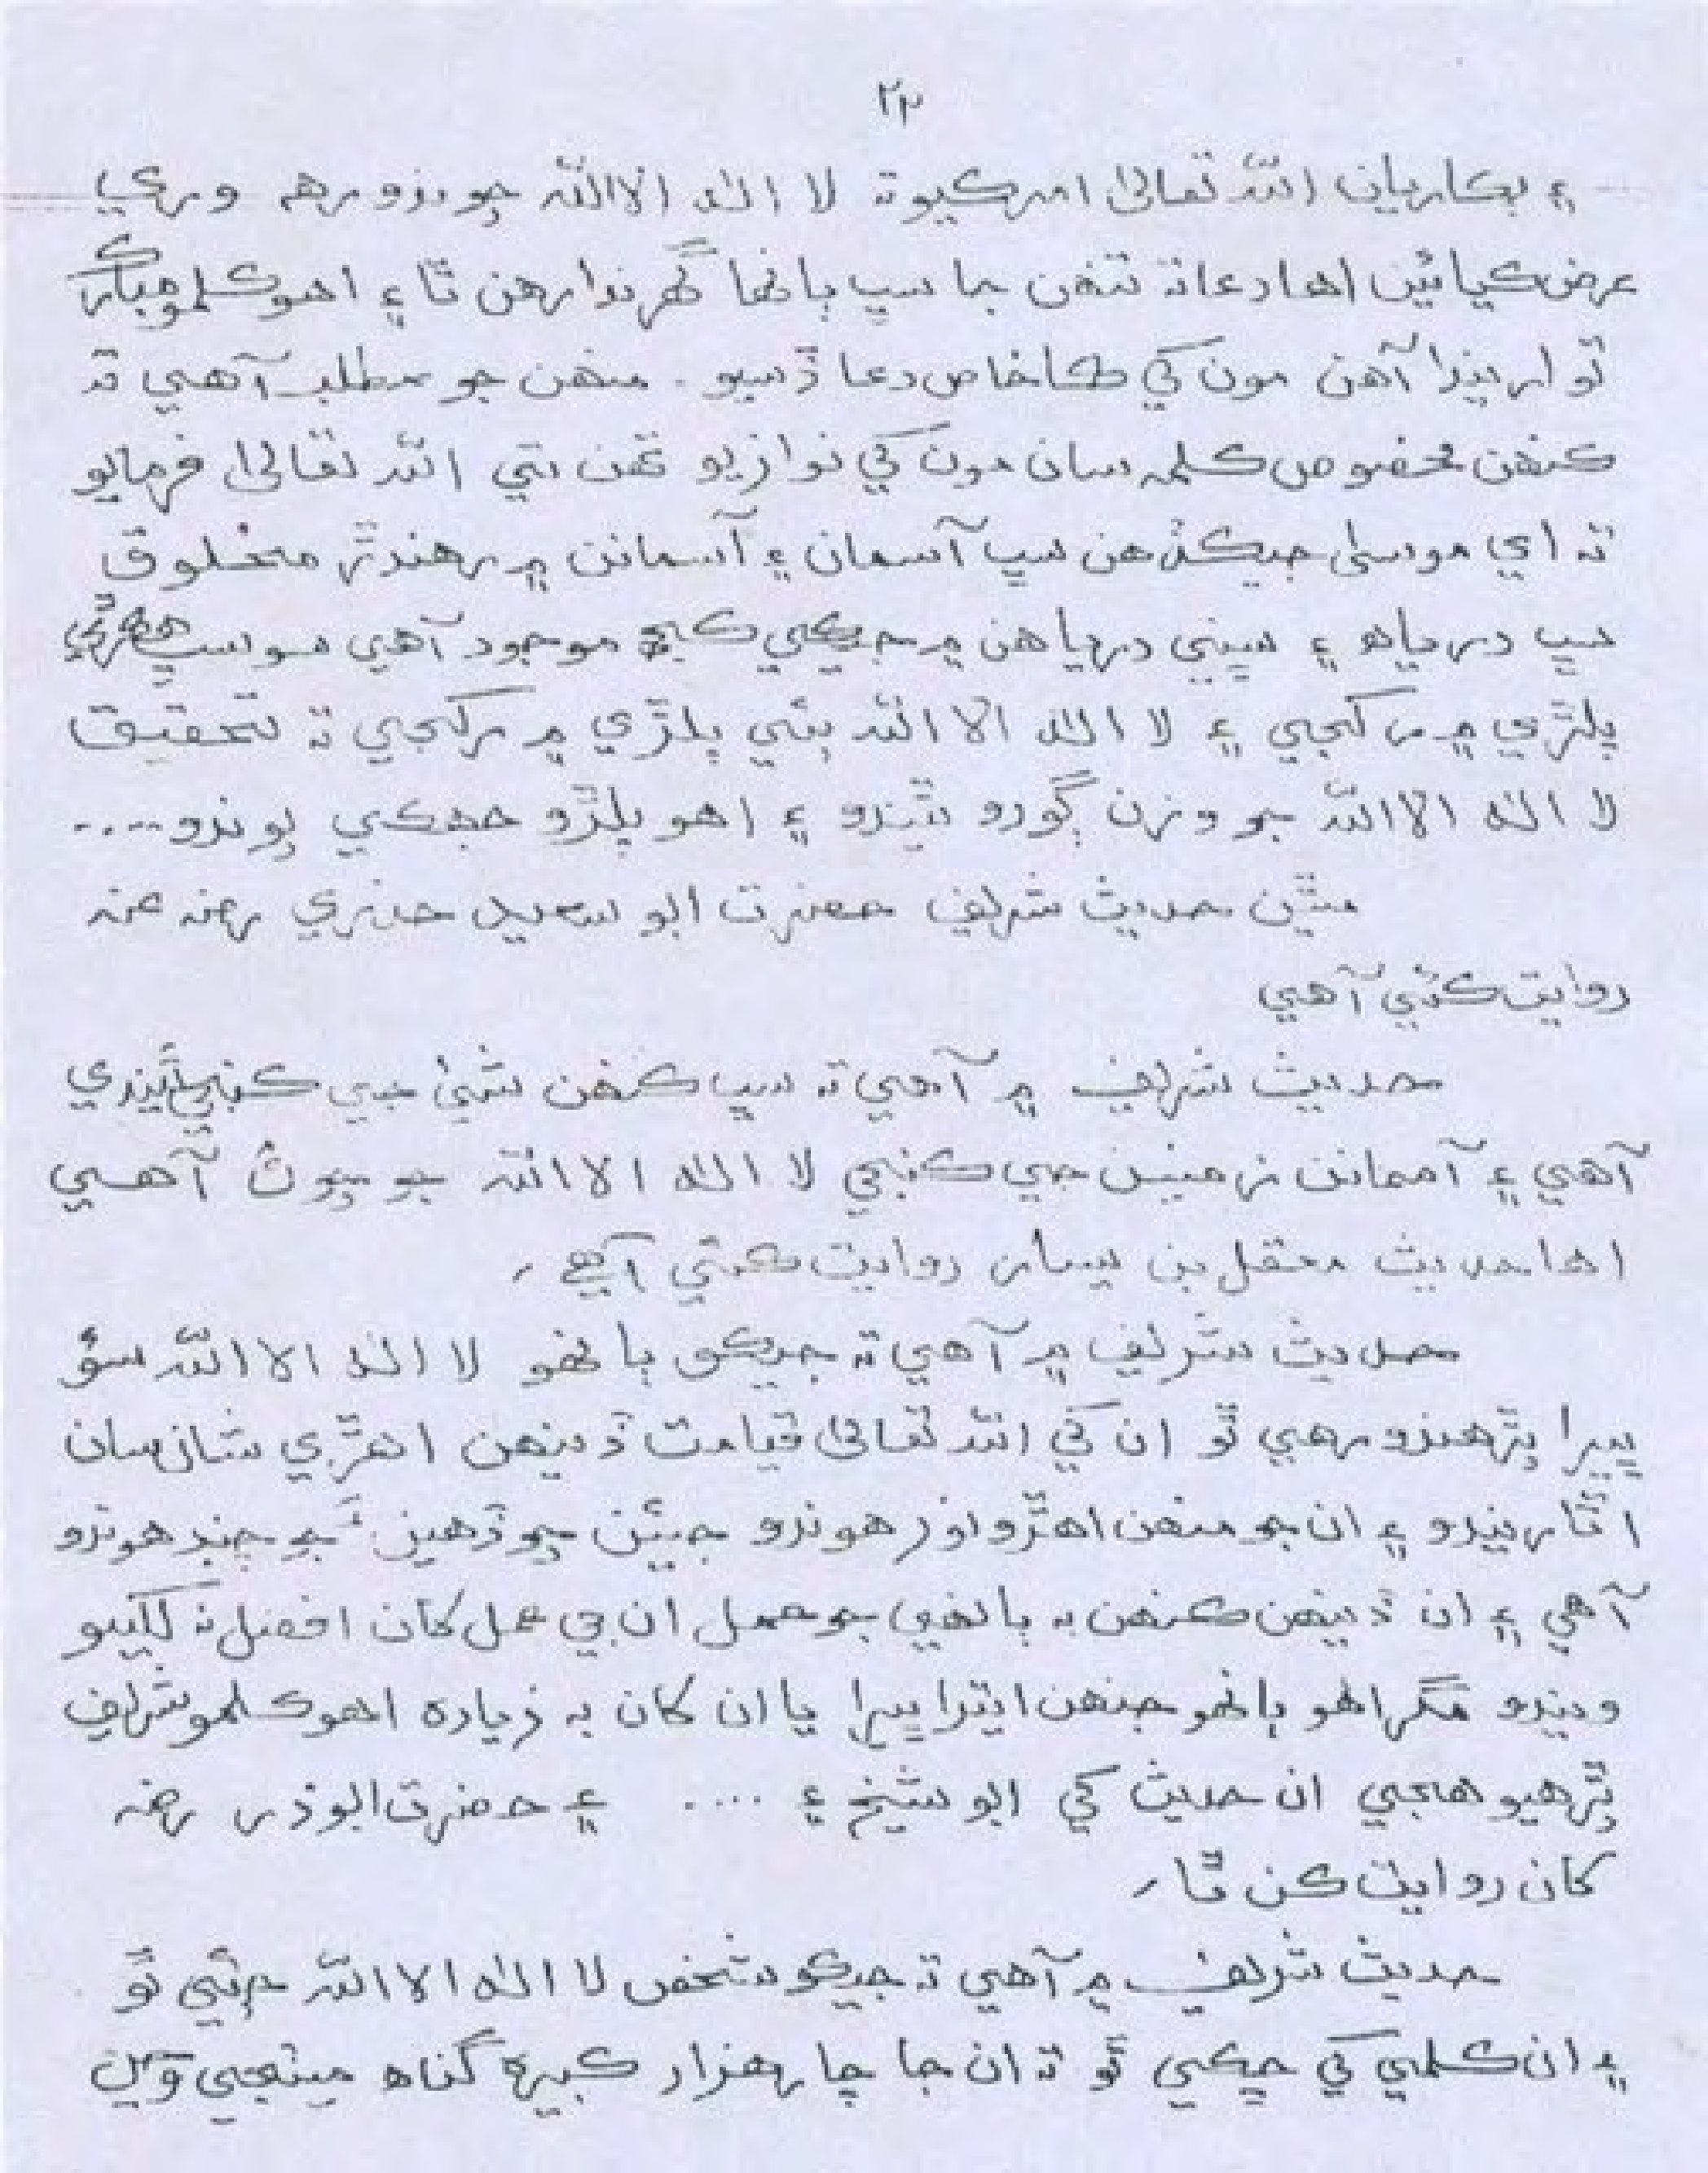 ۲۲
۽ بڪاريان الله تعالى امر ڪيو ته لا اله الا الله چوندو ره وري
عرض ڪيائين اها دعا ته تنهن جا سڀ ٻانها گهرندا رهن ٿا ۽ اهو ڪلمو مبارڪ
توارييندا آهن مون کي ڪا خاص دعا ڏسيو. منهن جو مطلب آهي ته
ڪنهن مخصوص ڪلمه سان مون کي نوازيو تنهن تي الله تعالى فرمايو
ته اي موسى جيڪڏهن سڀ آسمان ۽ آسمانن ۾ رهندڙ مخلوق
سڀ درياهه ۽ سڀني درياهن ۾ جيڪي ڪجهه موجود آهي سو سڀ هڪڙي
پلڙي ۾ رکجي ۽ لا اله الا الله ٻئي پلڙي ۾ رکجي ته تحقيق
لا اله الا الله جو وزن ڳورو ٿيندو ۽ اهو پلڙو جهڪي پوندو....
مٿين حديث شريف حضرت ابو سعيد خدري رضه عنه
روايت ڪئي آهي
حديث شريف ۾ آهي ته سڀ ڪنهن شئ جي ڪنجي ٿيندي
آهي ۽ آسمانن زمينن جي ڪنجي لا اله الا الله جو چوڻ آهي
اها حديث معقل بن يسار روايت ڪئي آهي.
حديث شريف ۾ آهي ته جيڪو ٻانهو لا اله الا الله سؤ
ڀيرا پڙهندو رهي ٿو ان کي الله تعالى قيامت ڏينهن اهڙي شان سان
اٿاريندو ۽ ان جو منهن اهڙو نور هوندو جيئن چوڏهين جو چنڊ هوندو
آهي ۽ ان ڏينهن ڪنهن به ٻانهي جو عمل ان جي عمل کان افضل نه لکيو
ويندو مگر اهو ٻانهو جنهن ايترا ڀيرا يا ان کان به زياده اهو ڪلمو شريف
پڙهيو هجي ان حديث کي ابو شيخ ۽ .... ۽ حضرت ابوذر رضه
کان روايت ڪن ٿا.
حديث شريف ۾ آهي ته جيڪو شخص لا اله الا الله چئي ٿو
۽ ان ڪلمي کي ڇڪي ٿو ته ان جا چار هزار ڪبيره گناهه ميٽجي وڃن